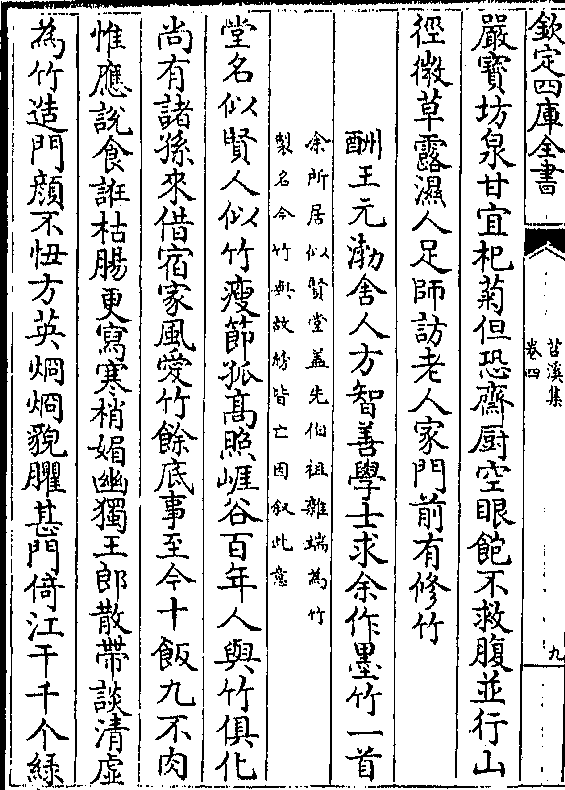 欽定四庫全書
苕溪集
卷四
九
嚴寳坊泉甘宜杞菊但恐齋厨空眼飽不救腹並行山
徑微草露濕人足師訪老人家門前有修竹
酬王元渤舍人方智善學士求余作墨竹一首
余所居似賢堂盖先伯祖雜端為竹
製名今竹與故榜皆亡因叙此意
堂名似賢人似竹瘦節孤高照崕谷百年人與竹俱化
尚有諸孫來借宿家風愛竹餘底事至今十飯九不肉
惟應說食誑枯腸更寫寒梢媚幽獨王郎散帶談清虚
為竹造門顔不忸方英烱烱貌臞甚門倚江干千个緑